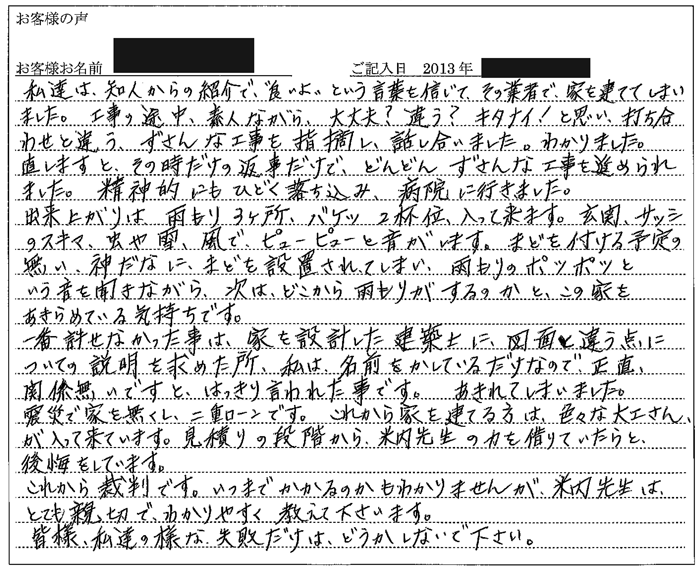 お客様の声
お客様お名前 ご記入日 2013年
私達は、知人からの紹介で、"良いよ"という言葉を信じて、その業者で、家を建ててしまい
ました。 工事の途中、素人ながら、大丈夫?違う?キタナイ!と思い、打ち合
わせと違う、ずさんな工事を指摘し、話し合いました。わかりました。
直しますと、その時だけの返事だけで、どんどんずさんな工事を進められ
ました。 精神的にもひどく落ち込み、病院に行きました。
出来上がりは、雨もり3ヶ所、バケツ2杯位、入って来ます。玄関、サッシ
のスキマ、虫や雪、風で、ピューピューと音がします。まどを付ける予定の
無い、神だなに、まどを設置されてしまい、雨もりのポッポッと
いう音を聞きながら、次は、どこから雨もりがするのかと、この家を
あきらめている気持ちです。
一番許せなかった事は、家を設計した建築士に、図面と違う点に
ついての説明を求めた所、私は、名前をかしているだけなので、正直、
関係無いですと、はっきり言われた事です。 あきれてしまいました。
震災で家を無くし、二重ローンです。 これから家を建てる方は、色々な大工さん
が入って来ています。見積りの段階から、米内先生の力を借りていたらと、
後悔をしています。
これから裁判です。いつまでかかるのかもわかりませんが、米内先生は、
とても親切で、わかりやすく教えて下さいます。
皆様、私達の様な失敗だけは、どうかしないで下さい。